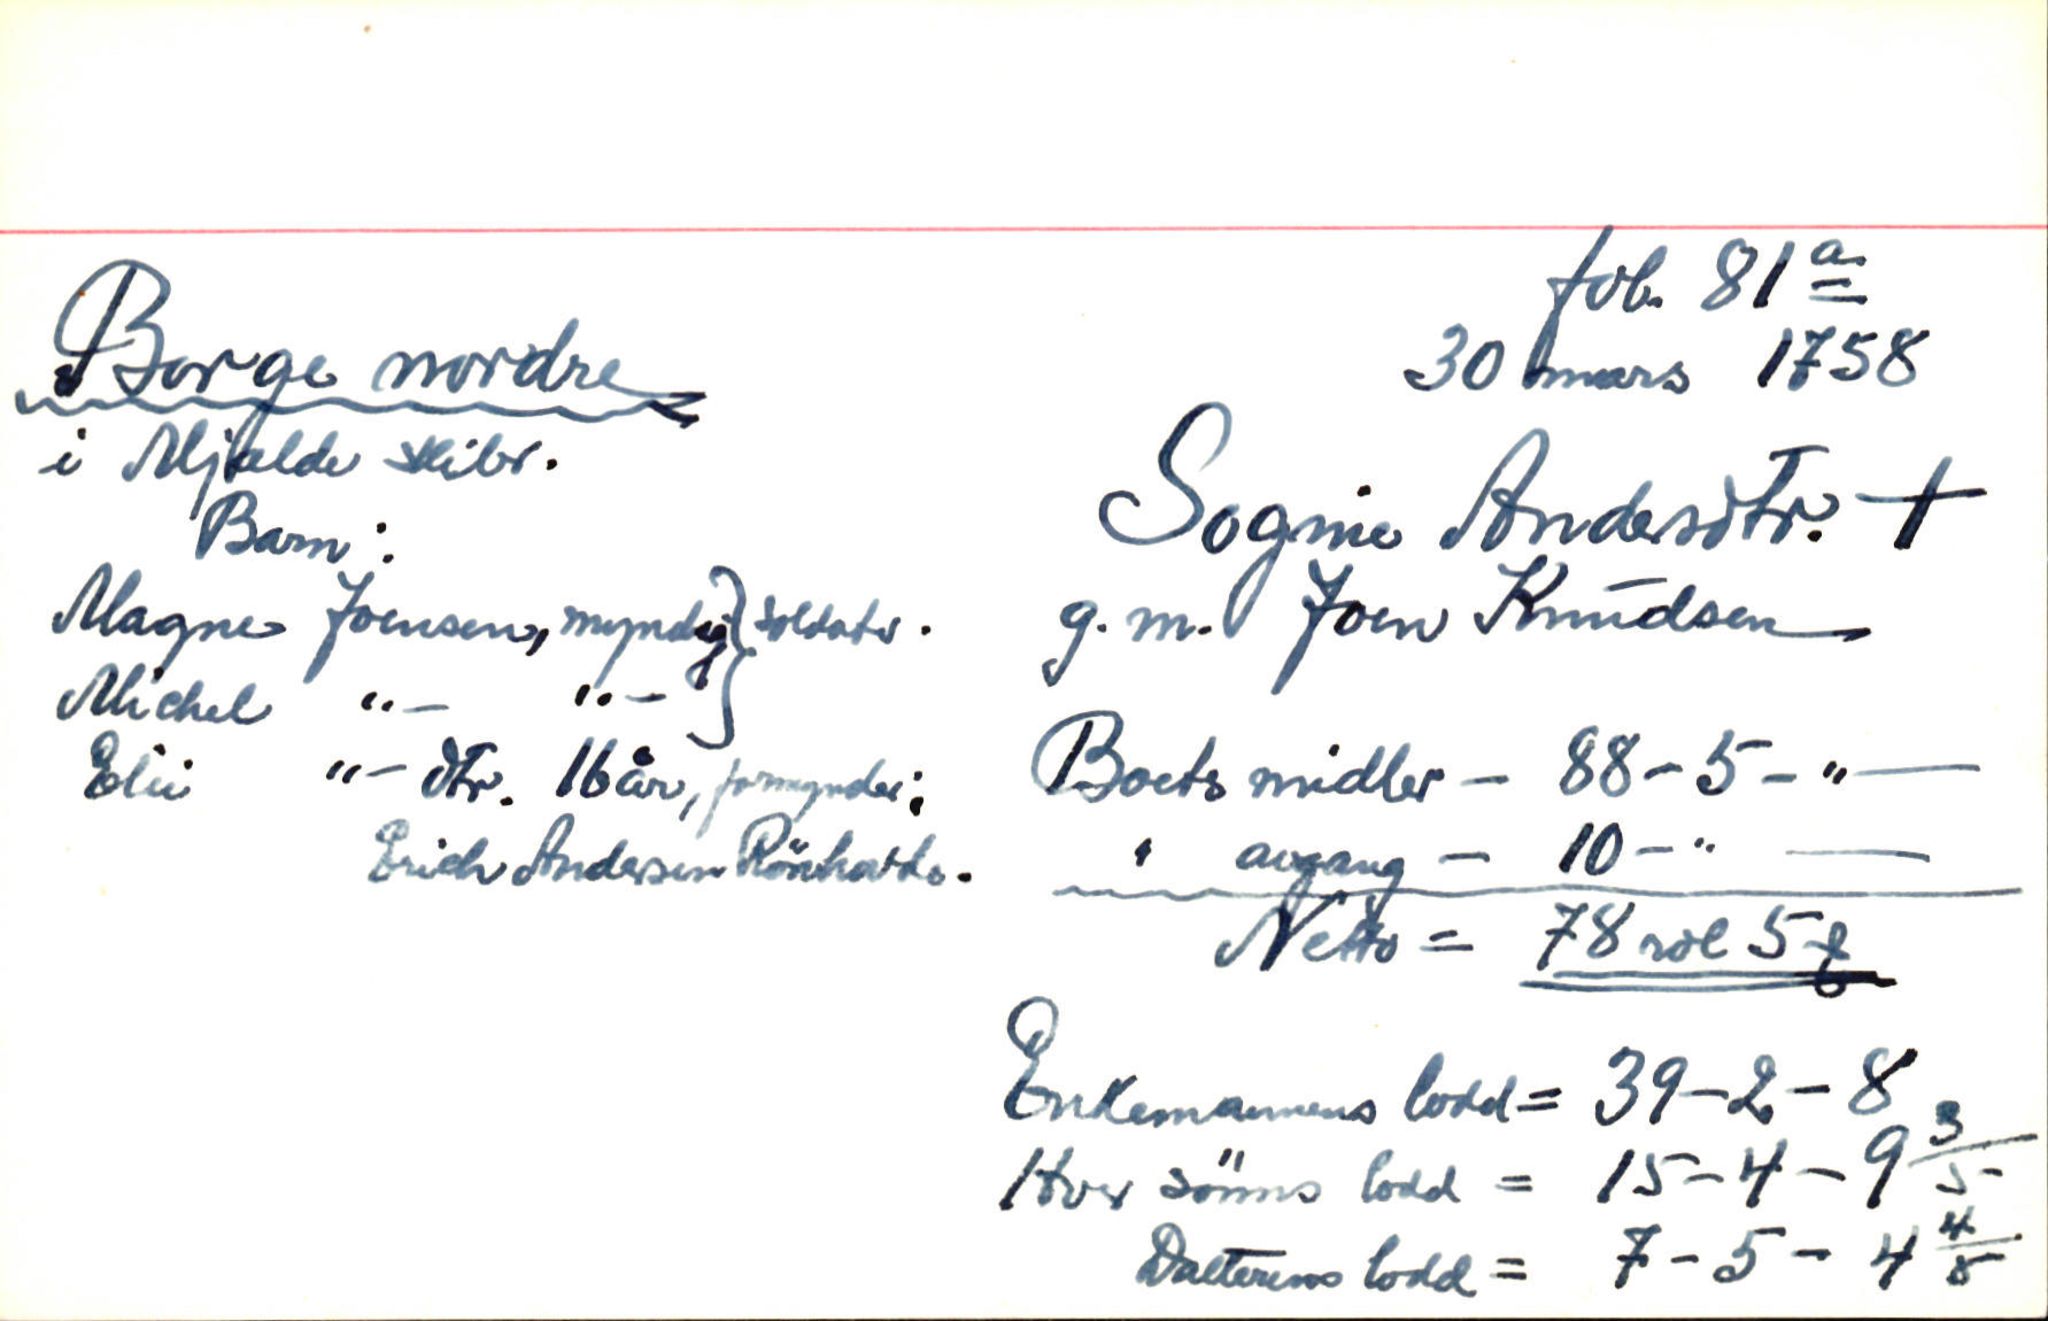 fol. 81 a
30 mars 1758
Borge nordre
i Mjelde skibr.
Barn:
Magne Joensen, myndig } soldater.
Michel "— "— }
Eli "— dtr. 16 år, formynder:
Erich Andersen
Sogni Andersdtr. †
g. m. Joen Knudsen
Boets midler — 88 - 5 - " —
" avgang — 10 - " —
Netto = 78 rdl 5
Enkemannens lodd = 39 - 2 - 8
Hver sönns lodd = 15 - 4 - 9 3/5
Datterens lodd = 7 - 5 - 4 4/5